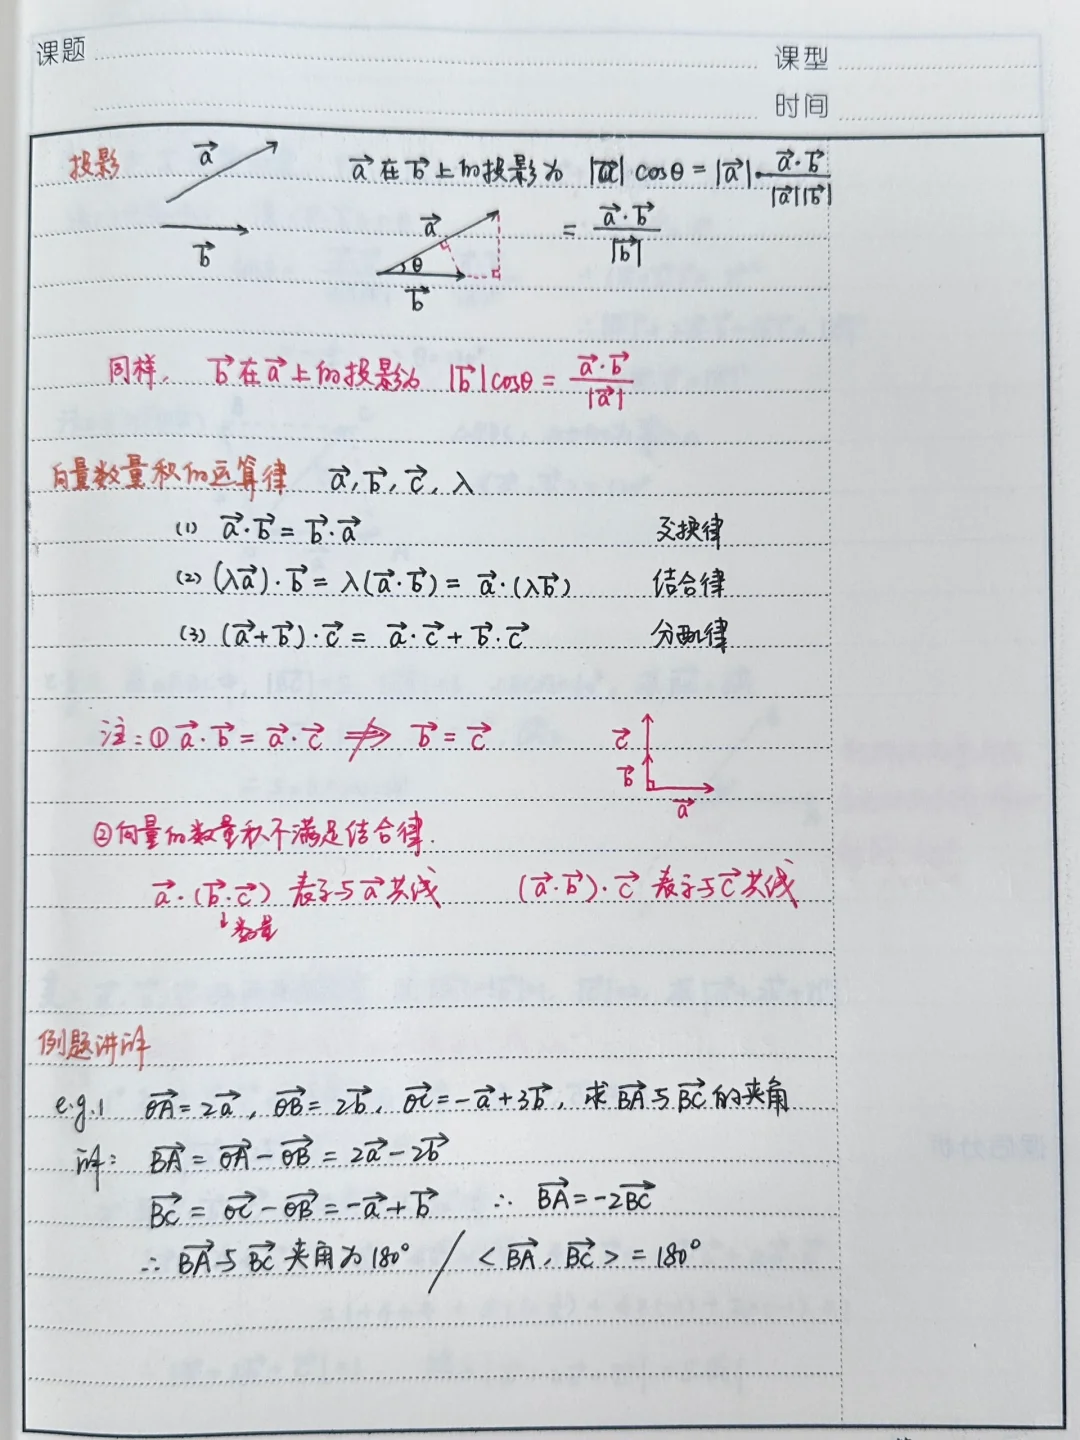 课题
课型
时间
投影
a⃗
b⃗
a⃗在b⃗上的投影为 |a⃗|cosθ=|a⃗|·(a⃗·b⃗)/(|a⃗||b⃗|)
=(a⃗·b⃗)/|b⃗|
a⃗
θ
b⃗
同样, b⃗在a⃗上的投影为 |b⃗|cosθ=(a⃗·b⃗)/|a⃗|
向量数量积的运算律 a⃗,b⃗,c⃗,λ
(1) a⃗·b⃗=b⃗·a⃗ 交换律
(2) (λa⃗)·b⃗=λ(a⃗·b⃗)=a⃗·(λb⃗) 结合律
(3) (a⃗+b⃗)·c⃗=a⃗·c⃗+b⃗·c⃗ 分配律
注:①a⃗·b⃗=a⃗·c⃗ ⇏ b⃗=c⃗
c⃗
b⃗
a⃗
②向量的数量积不满足结合律.
a⃗·(b⃗·c⃗) 表示与a⃗共线 (a⃗·b⃗)·c⃗ 表示与c⃗共线
↓数量
例题讲解
e.g.1 OA⃗=2a⃗, OB⃗=2b⃗, OC⃗=-a⃗+3b⃗, 求BA⃗与BC⃗的夹角
解: BA⃗=OA⃗-OB⃗=2a⃗-2b⃗
BC⃗=OC⃗-OB⃗=-a⃗+b⃗ ∴ BA⃗=-2BC⃗
∴ BA⃗与BC⃗夹角为180° / <BA⃗, BC⃗>=180°